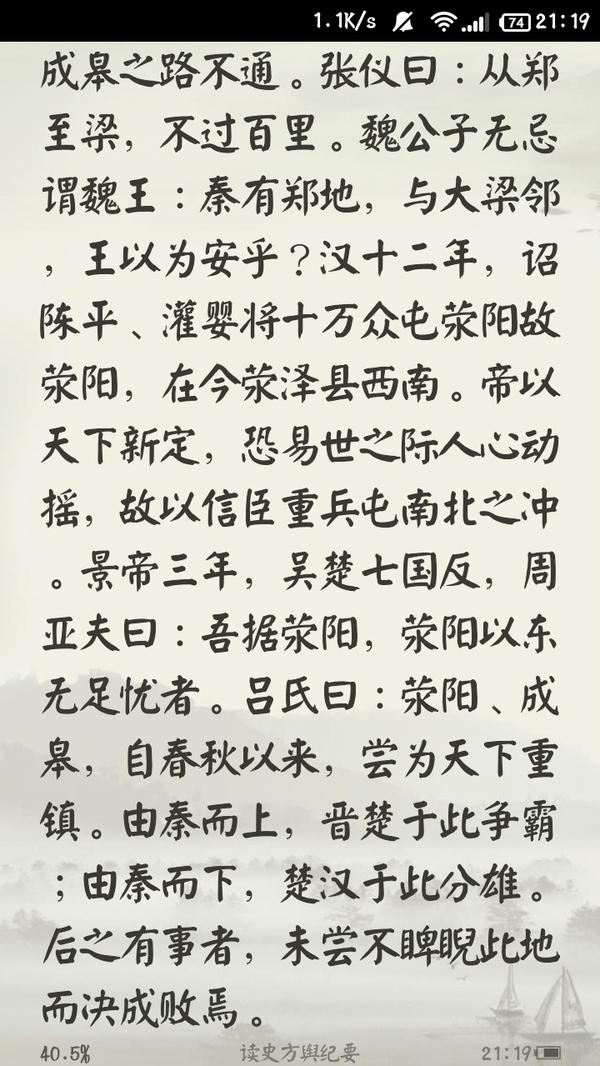 1.1K/s 74 21:19
成皋之路不通。张仪曰：从郑
至梁，不过百里。魏公子无忌
谓魏王：秦有郑地，与大梁邻
，王以为安乎？汉十二年，诏
陈平、灌婴将十万众屯荥阳故
荥阳，在今荥泽县西南。帝以
天下新定，恐易世之际人心动
摇，故以信臣重兵屯南北之冲
。景帝三年，吴楚七国反，周
亚夫曰：吾据荥阳，荥阳以东
无足忧者。吕氏曰：荥阳、成
皋，自春秋以来，尝为天下重
镇。由秦而上，晋楚于此争霸
；由秦而下，楚汉于此分雄。
后之有事者，未尝不睥睨此地
而决成败焉。
40.5% 读史方舆纪要 21:19